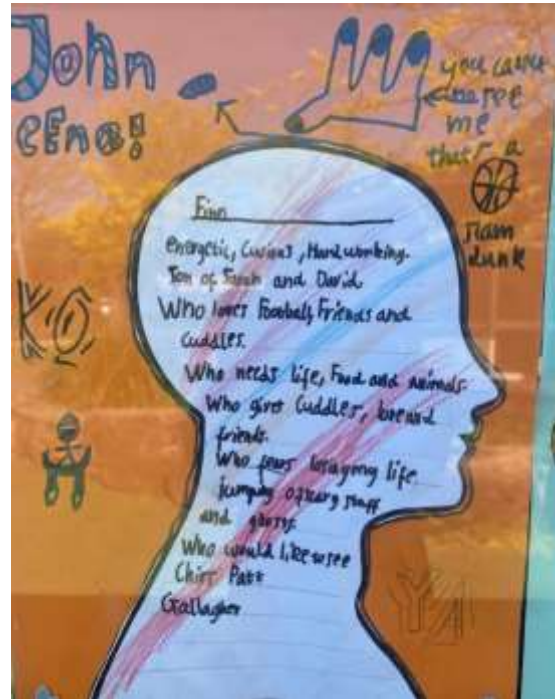 John
cEna!
you can't
see
me
that's a
slam
dunk
KO
Finn
energetic, Curious, Hard working.
Son of Sarah and David
Who loves Football, Friends and
Cuddles.
Who needs life, Food and animals.
Who gives Cuddles, love and
friends.
Who fears losaying life
jumping of scary stuff
and ghosts.
Who would like to see
Chirr Patt
Gallagher